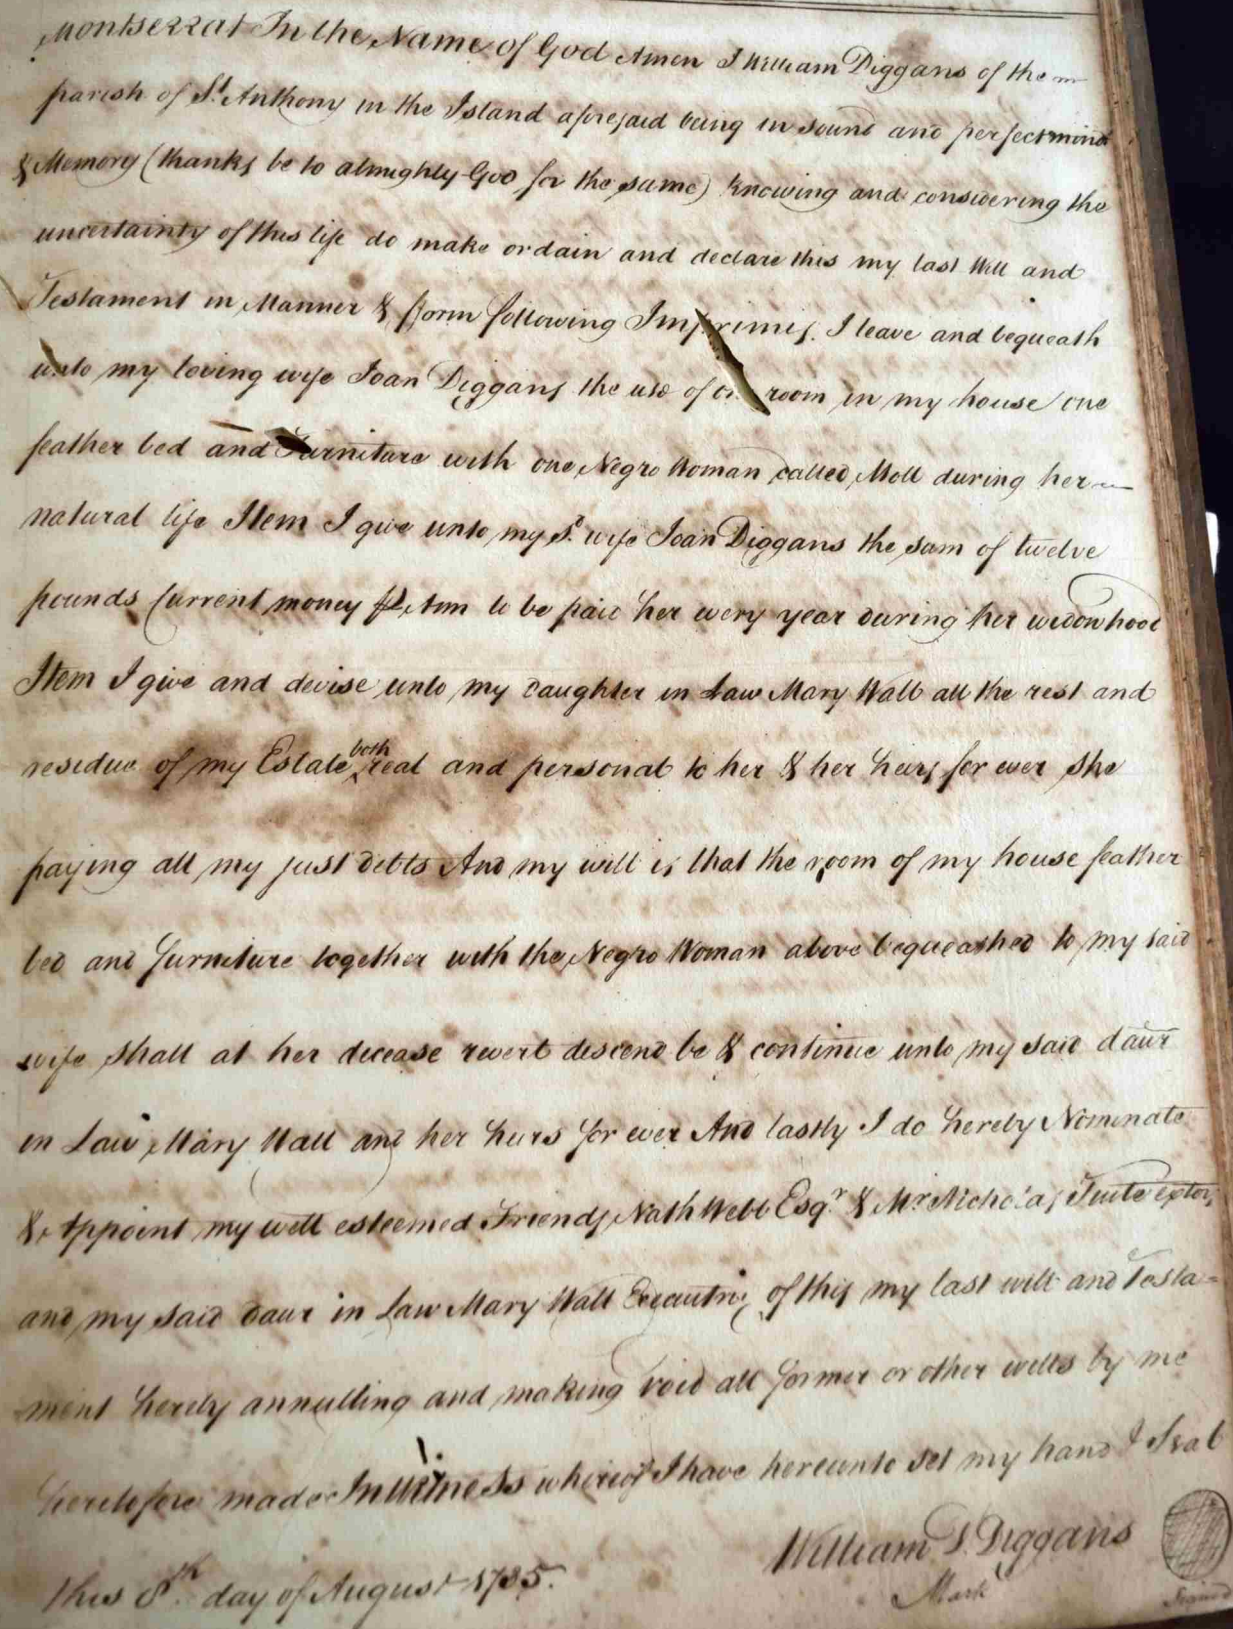 Montserrat In the Name of God Amen I William Diggans of the
parish of St. Anthony in the Island aforesaid being in sound and perfect mind
& Memory (thanks be to almighty God for the same) knowing and considering the
uncertainty of this life do make ordain and declare this my last Will and
Testament in Manner & form following Imprimis. I leave and bequeath
unto my loving wife Joan Diggans the use of room in my house one
feather bed and Furniture with one Negro Woman called Moll during her
natural life Item I give unto my sd. wife Joan Diggans the sum of twelve
pounds Current money Ann to be paid her every year during her widowhood
Item I give and devise unto my daughter in Law Mary Wall all the rest and
residue of my Estate both real and personal to her & her heirs for ever she
paying all my just debts And my will is that the room of my house feather
bed and furniture together with the Negro Woman above bequeathed to my said
wife shall at her decease revert descend be & continue unto my said daur
in Law Mary Wall and her heirs for ever And lastly I do hereby Nominate
& Appoint my well esteemed Friends Nath Webb Esqr. & Mr Nicholas Tuite extors
and my said daur in Law Mary Wall Executrix of this my last will and Testa=
ment hereby annulling and making void all former or other wills by me
heretofore made In Witness whereof I have hereunto set my hand & Seal
this 8th. day of August 1735.
William D Diggans
Mark
Signed